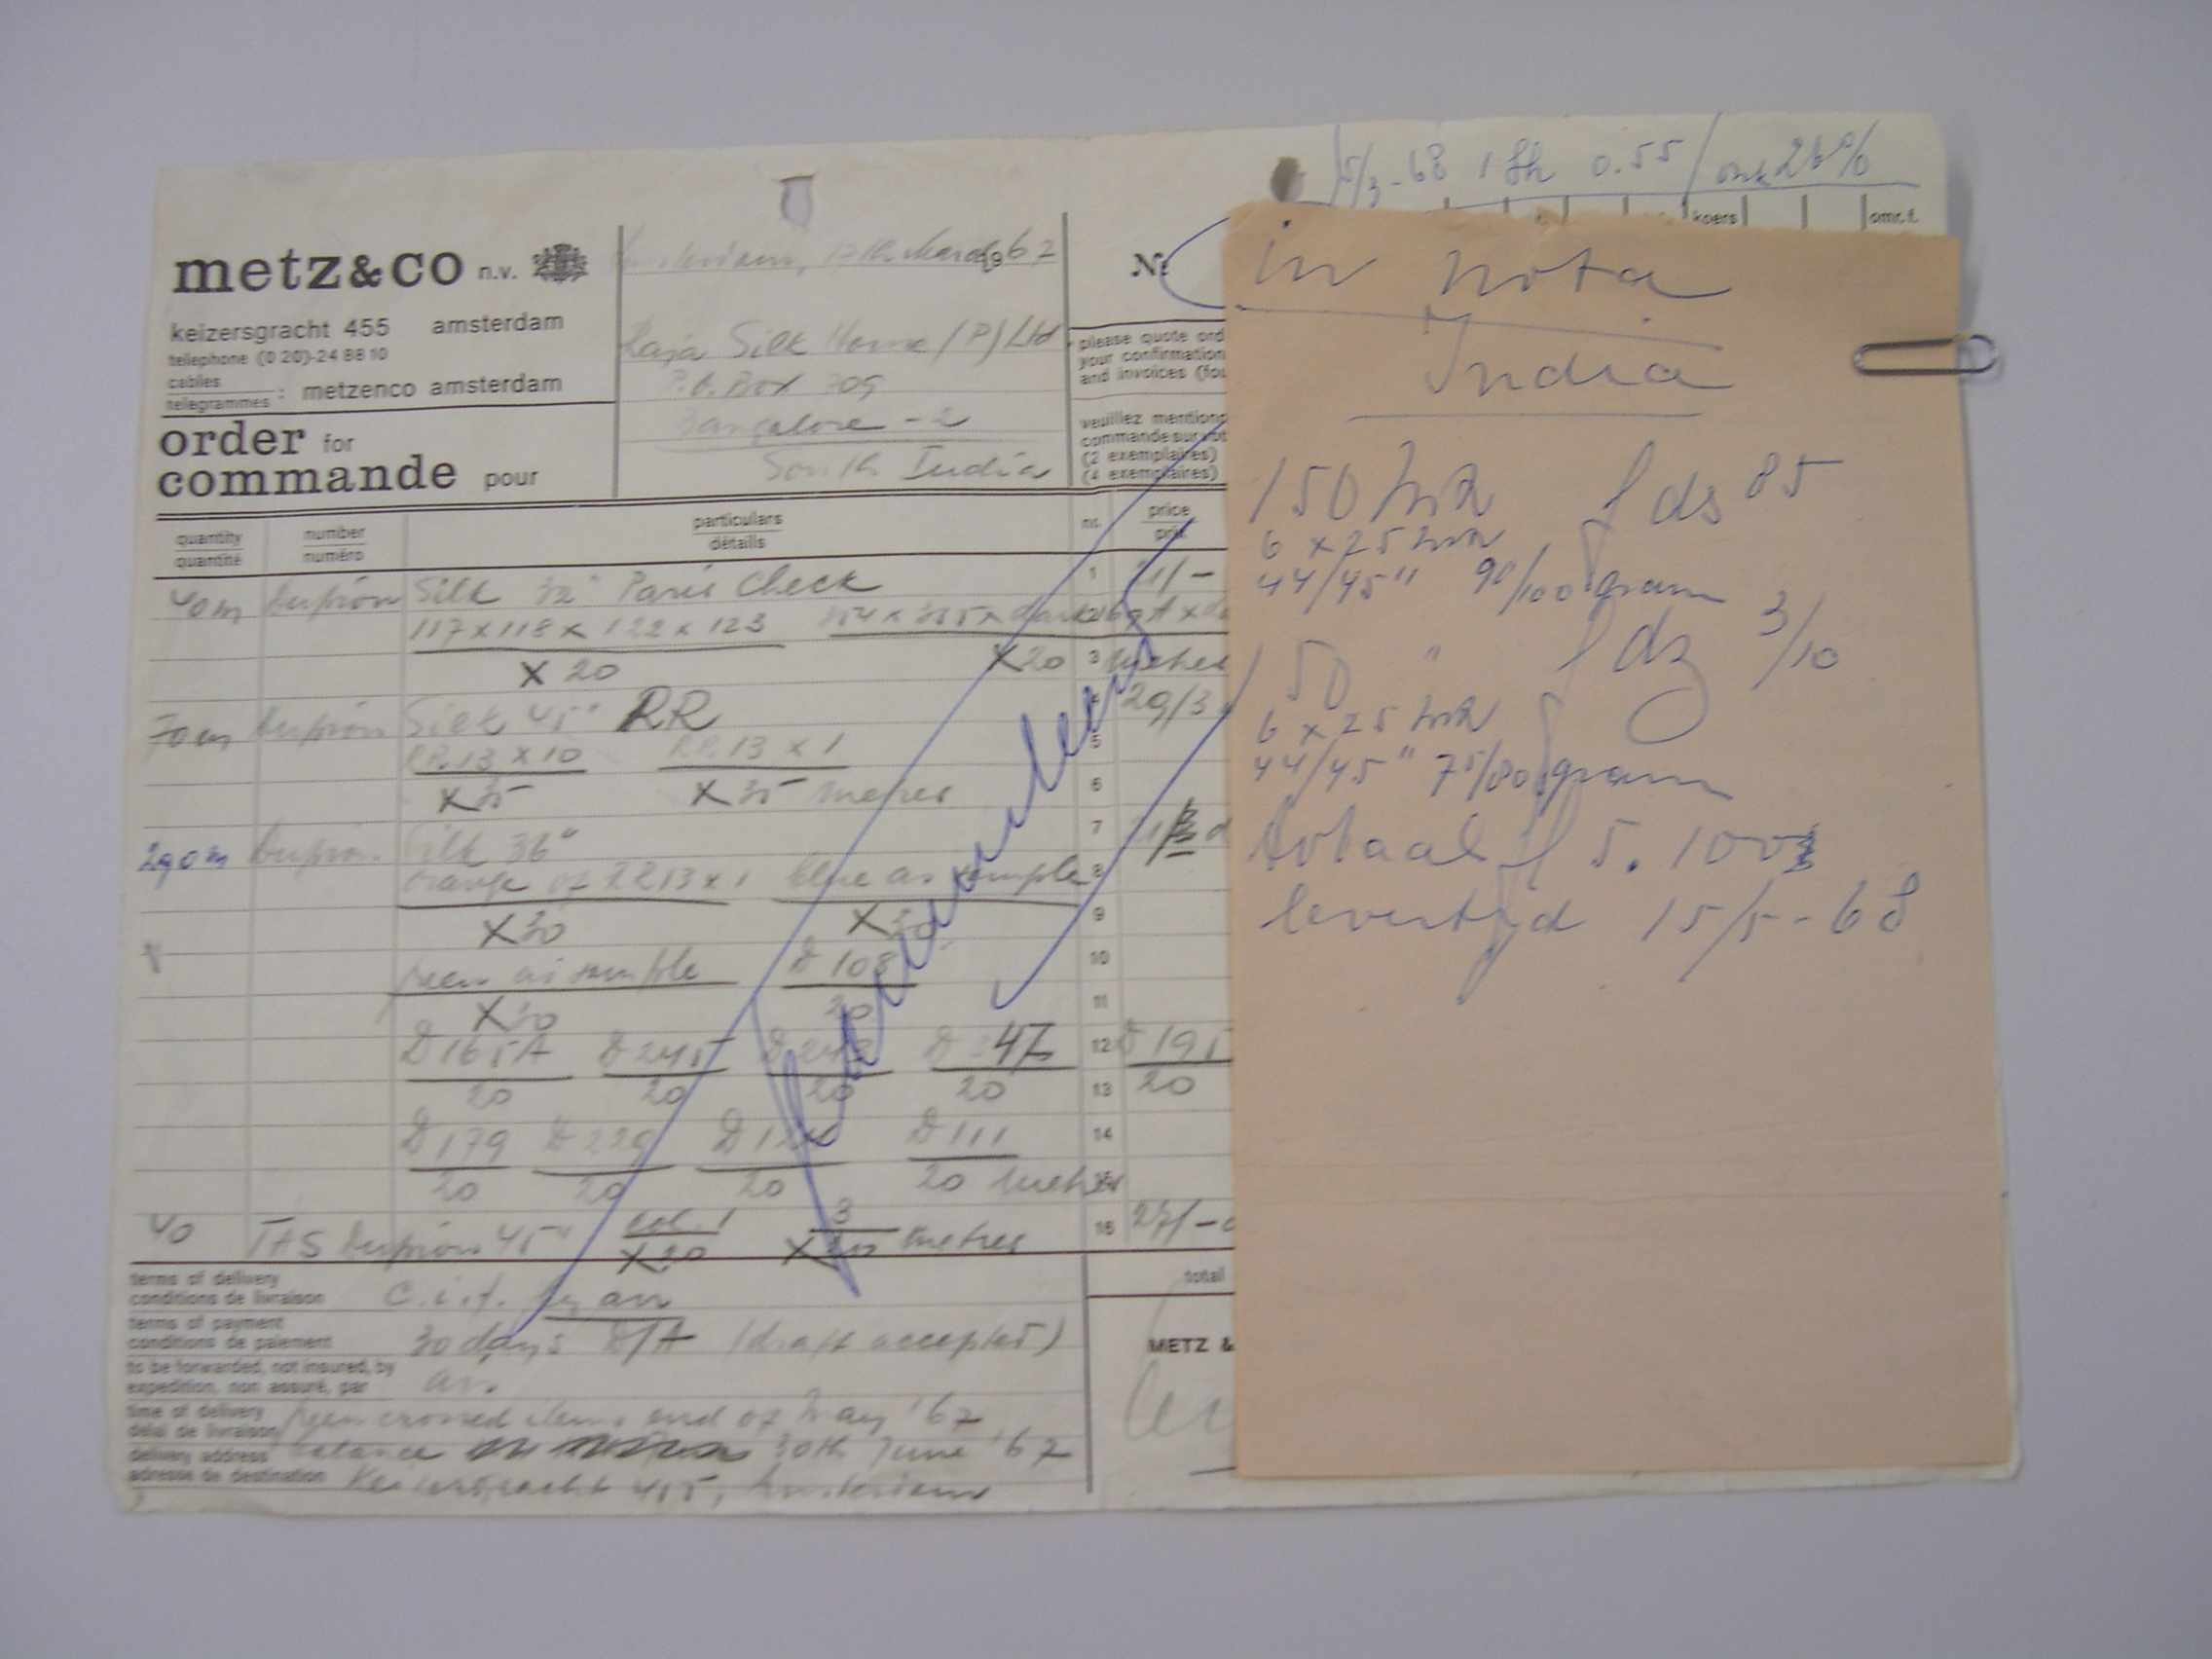 5/3-68 1 Sh 0.55
koers omr.f.
metz&co n.v.
keizersgracht 455 amsterdam
telephone (0 20)-24 88 10
cables
telegrammes : metzenco amsterdam
order for
commande pour
Amsterdam, 17th March 1967
Raja Silk House (P) Ltd
P.O. Box 709
Bangalore - 2
South India
No
please quote ord
your confirmation
and invoices (fou
veuillez mentionn
commande sur vot
(2 exemplaires)
(4 exemplaires)
quantity number particulars nr. price
quantité numéro détails prix
40 m dupion Silk 32" Paris Check 1
117 x 118 x 122 x 123
X 20 X 20 3 metres
70 m dupion Silk 45" RR 4 29/3
RR.13 x 10 RR.13 x 1 5
X 35 X 35 metres 6
290 m dupion Silk 36" 7
orange of RR13x1 blue as sample 8
X 30 9
green as sample D 108 10
X 30 20 11
D 165A D 245 D 247 12 D 195
20 20 20 20 13 20
D 179 D 229 D 111 14
20 20 20 20 metres
40 TAS dupion 45" col. 1 3 16 27/-
X 20 X 20 metres
terms of delivery
conditions de livraison c.i.f. by air
terms of payment
conditions de paiement 30 days D/A (draft accepted)
to be forwarded, not insured, by
expedition, non assuré, par air
time of delivery
délai de livraison green crossed items end of May '67
balance 30th June '67
delivery address
adresse de destination Keizersgracht 455, Amsterdam
total
METZ &
in nota
India
150 mtr f ds 85
6 x 25 mtr
44/45" 90/100 gram
150 " f ds 3/10
6 x 25 mtr
44/45" 75/80 gram
totaal f 5.100
levertijd 15/5-68